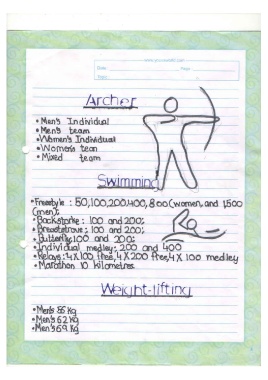 Archer
• Men's Individual
• Men's team
• Women's Individual
• Women's tean
• Mixed team
Swimming
• Freestyle : 50,100,200,400, 800 (women, and 1,500
(men);
• Backstorke : 100 and 200;
• Breaststrove : 100 and 200;
• Butterfly, 100 and 200;
• Individual medley; 200 and 400
• Relays: 4X100 free, 4X200 free, 4X100 medley
• Marathon 10 kilometres
Weight-lifting
• Men's 56 kg
• Men's 62 kg
• Men's 69 kg